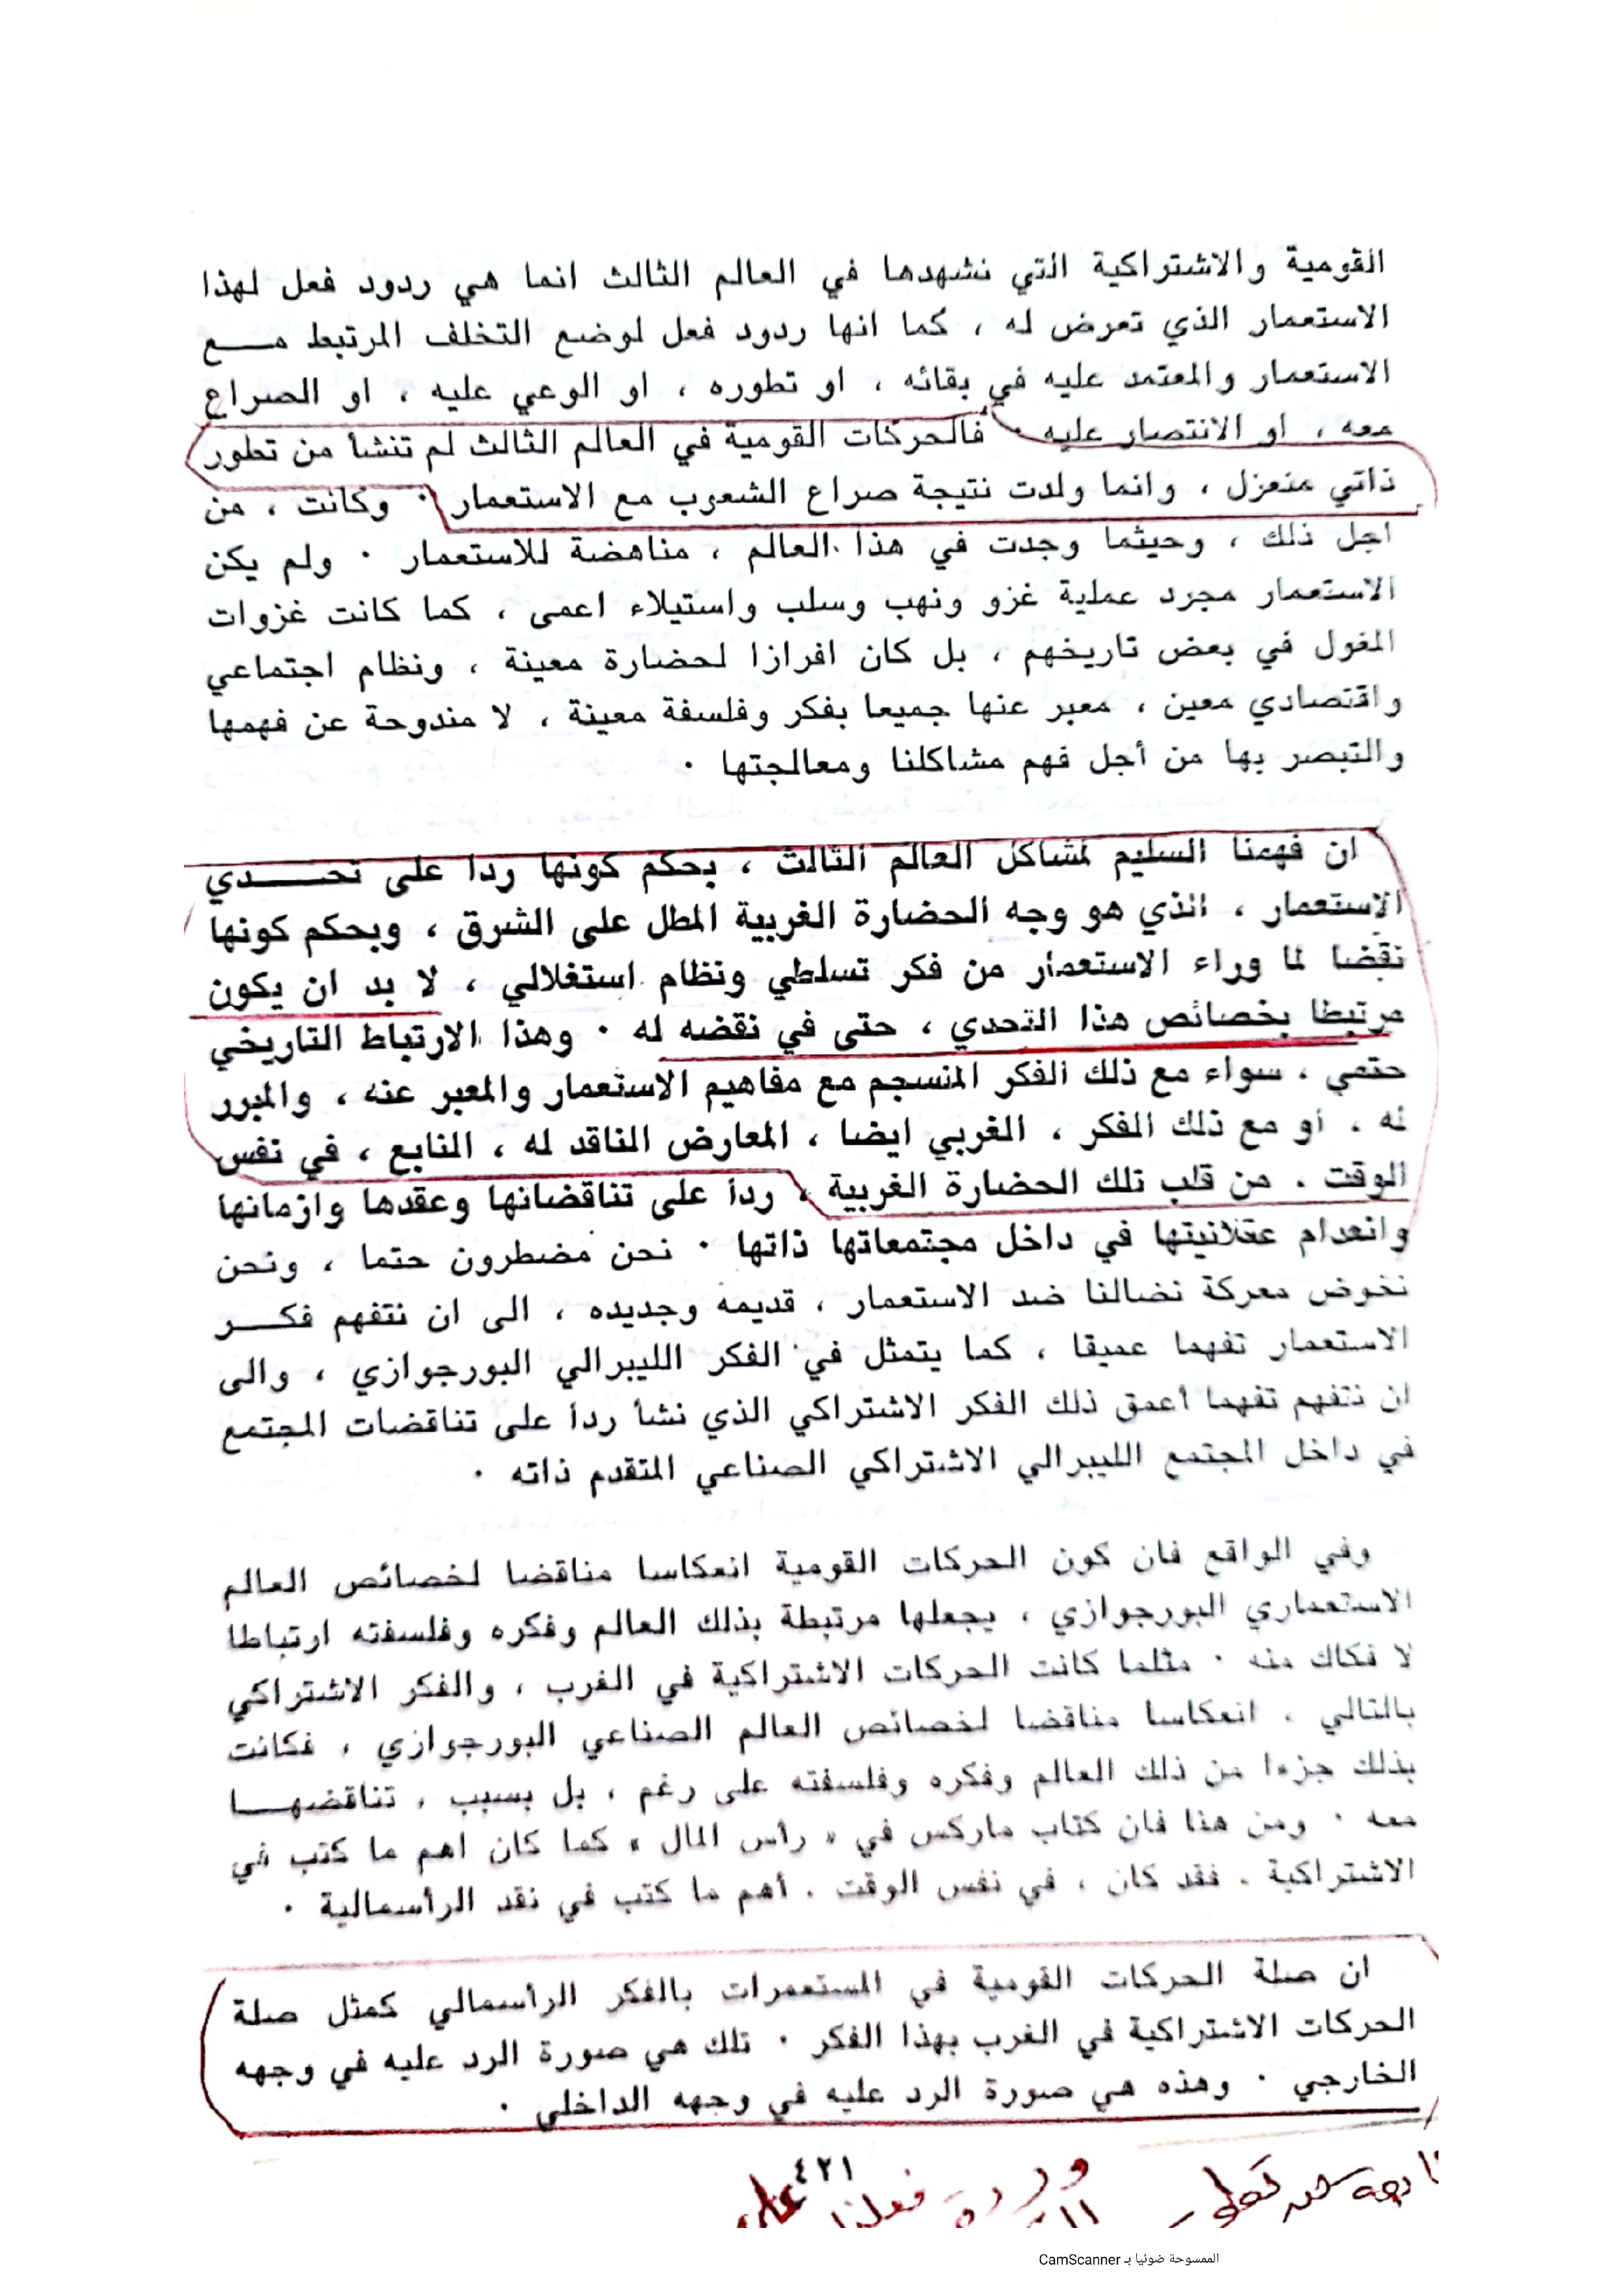 القومية والاشتراكية التي نشهدها في العالم الثالث انما هي ردود فعل لهذا
الاستعمار الذي تعرض له ، كما انها ردود فعل لوضع التخلف المرتبط مـــع
الاستعمار والمعتمد عليه في بقائه ، او تطوره ، او الوعي عليه ، او الصراع
معه ، او الانتصار عليه . فالحركات القومية في العالم الثالث لم تنشأ من تطور
ذاتي منعزل ، وانما ولدت نتيجة صراع الشعوب مع الاستعمار . وكانت ، من
اجل ذلك ، وحيثما وجدت في هذا العالم ، مناهضة للاستعمار . ولم يكن
الاستعمار مجرد عملية غزو ونهب وسلب واستيلاء اعمى ، كما كانت غزوات
المغول في بعض تاريخهم ، بل كان افرازا لحضارة معينة ، ونظام اجتماعي
واقتصادي معين ، معبر عنها جميعا بفكر وفلسفة معينة ، لا مندوحة عن فهمها
والتبصر بها من أجل فهم مشاكلنا ومعالجتها .
ان فهمنا السليم لمشاكل العالم الثالث ، بحكم كونها ردا على تحـــدي
الاستعمار ، الذي هو وجه الحضارة الغربية المطل على الشرق ، وبحكم كونها
نقضا لما وراء الاستعمار من فكر تسلطي ونظام استغلالي ، لا بد ان يكون
مرتبطا بخصائص هذا التحدي ، حتى في نقضه له . وهذا الارتباط التاريخي
حتمي ، سواء مع ذلك الفكر المنسجم مع مفاهيم الاستعمار والمعبر عنه ، والمبرر
له . او مع ذلك الفكر ، الغربي ايضا ، المعارض الناقد له ، النابع ، في نفس
الوقت ، من قلب تلك الحضارة الغربية ، ردا على تناقضاتها وعقدها وازماتها
وانعدام عقلانيتها في داخل مجتمعاتها ذاتها . نحن مضطرون حتما ، ونحن
نخوض معركة نضالنا ضد الاستعمار ، قديمه وجديده ، الى ان نتفهم فكـــر
الاستعمار تفهما عميقا ، كما يتمثل في الفكر الليبرالي البورجوازي ، والى
ان نتفهم تفهما أعمق ذلك الفكر الاشتراكي الذي نشأ ردا على تناقضات المجتمع
في داخل المجتمع الليبرالي الاشتراكي الصناعي المتقدم ذاته .
وفي الواقع فان كون الحركات القومية انعكاسا مناقضا لخصائص العالم
الاستعماري البورجوازي ، يجعلها مرتبطة بذلك العالم وفكره وفلسفته ارتباطا
لا فكاك منه . مثلما كانت الحركات الاشتراكية في الغرب ، والفكر الاشتراكي
بالتالي ، انعكاسا مناقضا لخصائص العالم الصناعي البورجوازي ، فكانت
بذلك جزءا من ذلك العالم وفكره وفلسفته على رغم ، بل بسبب ، تناقضهـــا
معه . ومن هنا فان كتاب ماركس في « رأس المال » كما كان اهم ما كتب في
الاشتراكية ، فقد كان ، في نفس الوقت ، أهم ما كتب في نقد الرأسمالية .
ان صلة الحركات القومية في المستعمرات بالفكر الرأسمالي كمثل صلة
الحركات الاشتراكية في الغرب بهذا الفكر . تلك هي صورة الرد عليه في وجهه
الخارجي . وهذه هي صورة الرد عليه في وجهه الداخلي .
٤٢١
الممسوحة ضوئيا بـ CamScanner